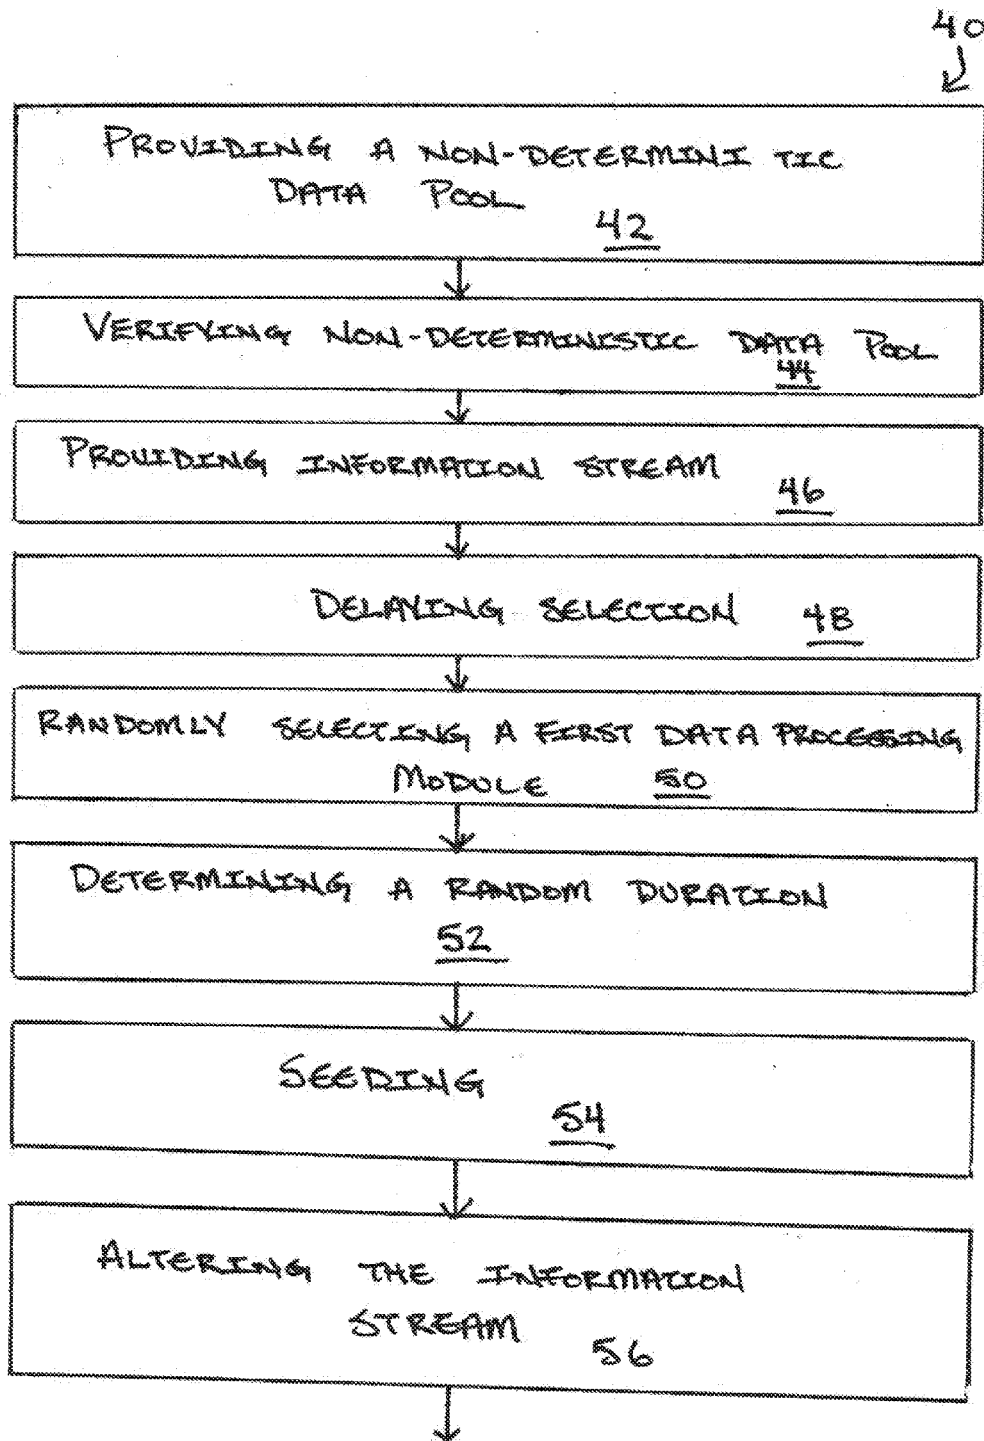 40
PROVIDING A NON-DETERMINI TIC
DATA POOL
42
VERIFYING NON-DETERMINISTIC DATA POOL
44
PROVIDING INFORMATION STREAM
46
DELAYING SELECTION 48
RANDOMLY SELECTING A FIRST DATA PROCESSING
MODULE 50
DETERMINING A RANDOM DURATION
52
SEEDING
54
ALTERING THE INFORMATION
STREAM 56